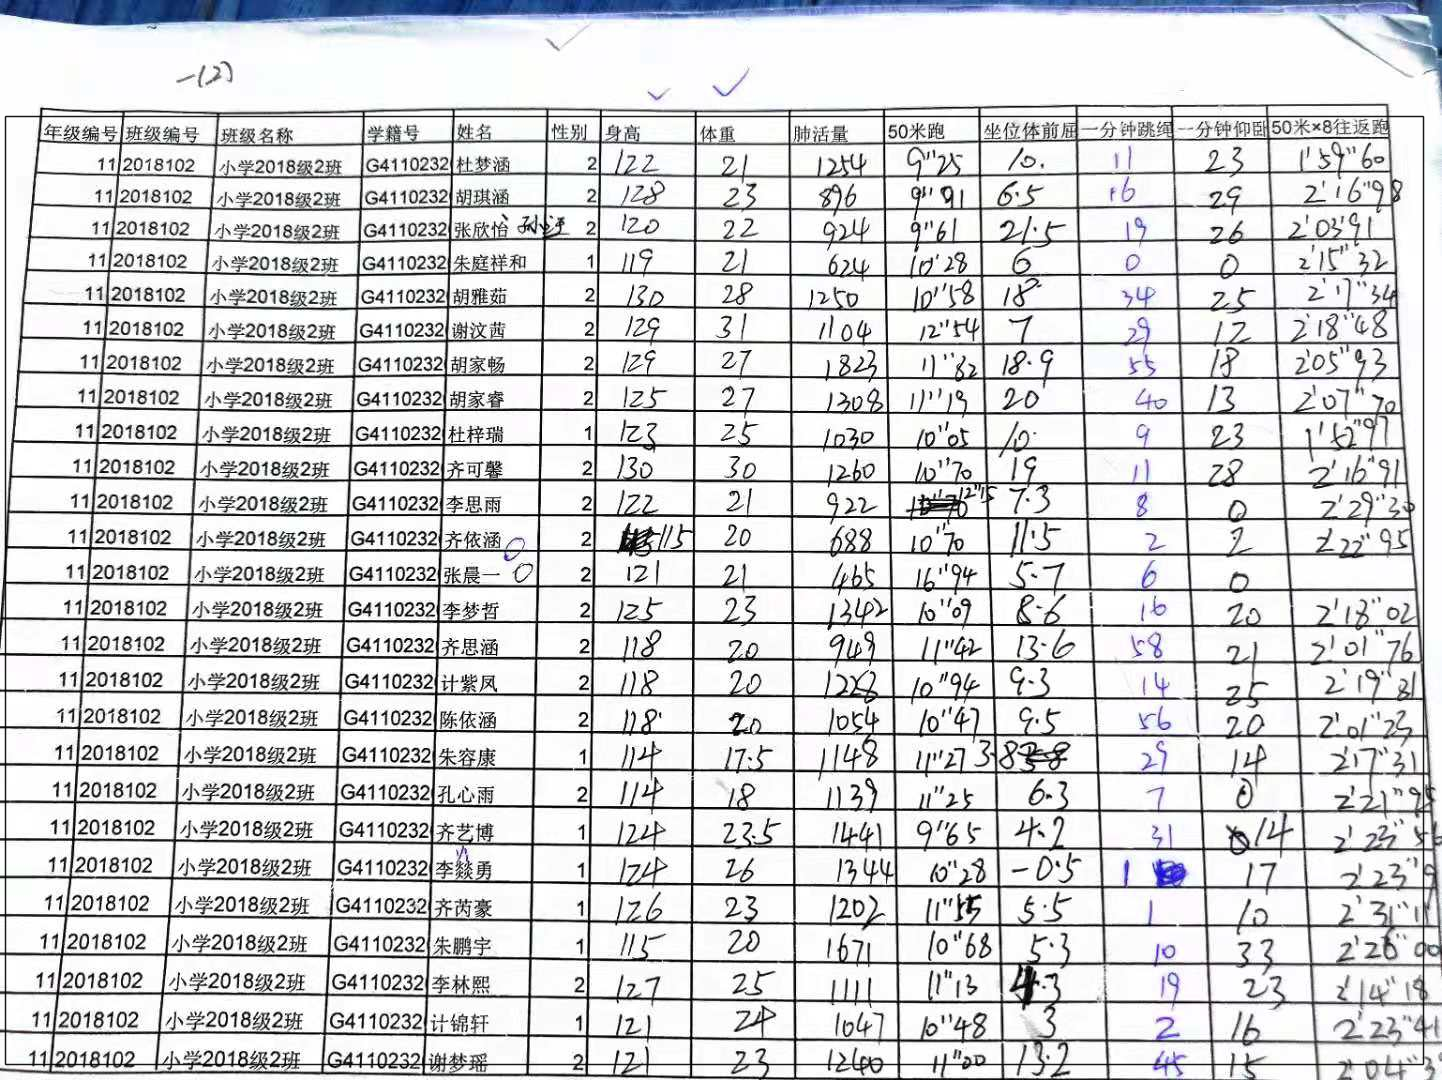 一(2)
年级编号 班级编号 班级名称 学籍号 姓名 性别 身高 体重 肺活量 50米跑 坐位体前屈 一分钟跳绳 一分钟仰卧 50米×8往返跑
11 2018102 小学2018级2班 G4110232 杜梦涵 2 122 21 1254 9"25 10. 11 23 1'59"60
11 2018102 小学2018级2班 G4110232 胡琪涵 2 128 23 896 9"91 6.5 16 29 2'16"98
11 2018102 小学2018级2班 G4110232 张欣怡 2 120 22 924 9"61 21.5 19 26 2'03"91
11 2018102 小学2018级2班 G4110232 朱庭祥和 1 119 21 624 10'28 6 0 0 2'15"32
11 2018102 小学2018级2班 G4110232 胡雅茹 2 130 28 1250 10"58 18 34 25 2'17"34
11 2018102 小学2018级2班 G4110232 谢汶茜 2 129 31 1104 12"54 7 29 12 2'18"48
11 2018102 小学2018级2班 G4110232 胡家畅 2 129 27 1823 11"82 18.9 55 18 2'05"93
11 2018102 小学2018级2班 G4110232 胡家睿 2 125 27 1308 11"19 20 40 13 2'07"70
11 2018102 小学2018级2班 G4110232 杜梓瑞 1 123 25 1030 10"05 10. 9 23 1'52"97
11 2018102 小学2018级2班 G4110232 齐可馨 2 130 30 1260 10"70 19 11 28 2'16"91
11 2018102 小学2018级2班 G4110232 李思雨 2 122 21 922 12"15 7.3 8 0 2'29"30
11 2018102 小学2018级2班 G4110232 齐依涵 2 115 20 688 10"70 11.5 2 2 2'22"95
11 2018102 小学2018级2班 G4110232 张晨一 2 121 21 465 16"94 5.7 6 0
11 2018102 小学2018级2班 G4110232 李梦哲 2 125 23 1342 10"09 8.6 16 20 2'18"02
11 2018102 小学2018级2班 G4110232 齐思涵 2 118 20 949 11"42 13.6 58 21 2'01"76
11 2018102 小学2018级2班 G4110232 计紫凤 2 118 20 1228 10"94 9.3 14 25 2'19"31
11 2018102 小学2018级2班 G4110232 陈依涵 2 118 20 1054 10"47 9.5 56 20 2'01"23
11 2018102 小学2018级2班 G4110232 朱容康 1 114 17.5 1148 11"27 3.8 29 14 2'17"31
11 2018102 小学2018级2班 G4110232 孔心雨 2 114 18 1139 11"25 6.3 7 0 2'21"95
11 2018102 小学2018级2班 G4110232 齐艺博 1 124 23.5 1441 9"65 4.2 31 14 2'23"56
11 2018102 小学2018级2班 G4110232 李燚勇 1 124 26 1344 10"28 -0.5 1 17 2'23"9
11 2018102 小学2018级2班 G4110232 齐芮豪 1 126 23 1202 11"55 5.5 1 10 2'31"11
11 2018102 小学2018级2班 G4110232 朱鹏宇 1 115 20 1671 10"68 5.3 10 33 2'26"00
11 2018102 小学2018级2班 G4110232 李林熙 2 127 25 1111 11"13 4.3 19 23 2'14"18
11 2018102 小学2018级2班 G4110232 计锦轩 1 121 24 1047 10"48 3 2 16 2'23"41
11 2018102 小学2018级2班 G4110232 谢梦瑶 2 121 23 1240 11"00 13.2 45 15 2'04"3